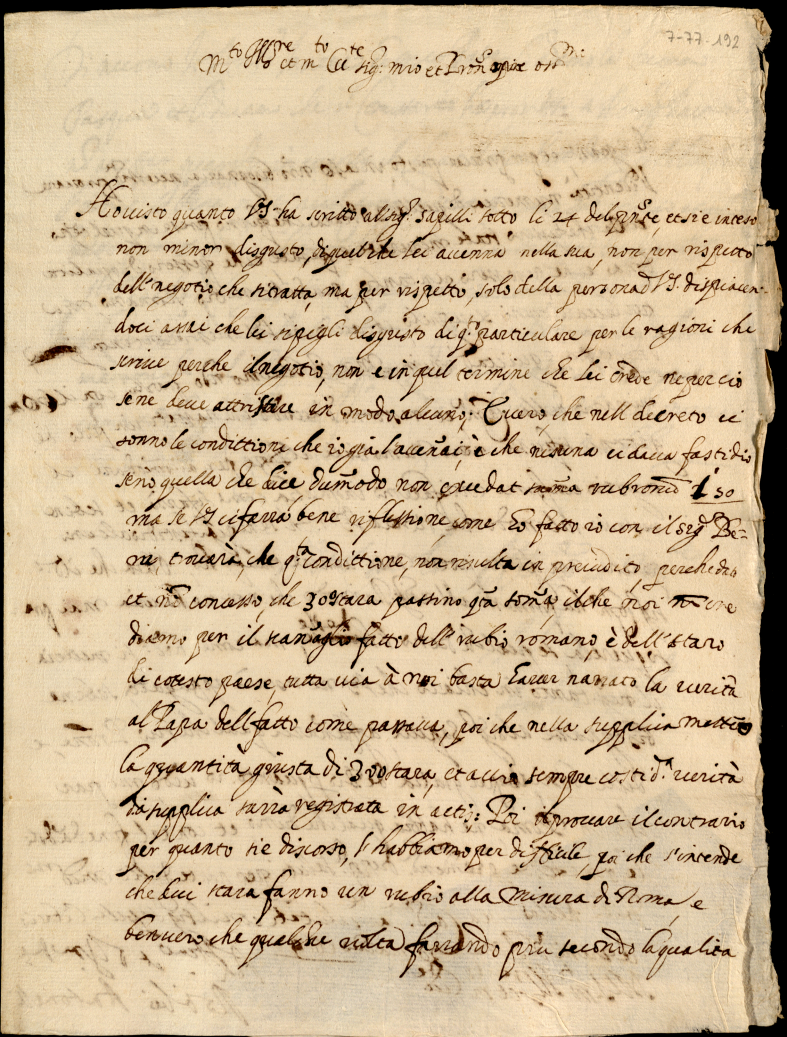 7-77-192
M.to Ill.re et m.to Ecc.te sig.r mio et Pron
Ho visto quanto VS ha scritto al sig.r Sapilli sotto li 24 del pnte, et si è inteso
non minor disgusto, di quel che lei accenna nella sua, non per rispetto
dell negotio che si tratta, ma per rispetto, solo della persona d VS. dispiacen
doci assai che lei si pigli disgusto di q.o particulare per le ragioni che
scrive perche il negotio, non e in quel termine che lei crede ne percio
se ne deve attristare in modo alcuno, E vero, che nell decreto ci
sonno le condittioni che io già l'accenai, è che nisuna ci dava fastidio
senò quella che dice dummodo non excedat rubrorum 150
ma se VS ci farrà bene riflessione, come ho fatto io con il sig.r Be=
ni, trovarà, che q.ta condittione, non risulta in preiuditio, perche
et concesso, che 30 stara passino q.ta soma, il che noi cre
diamo per il scanaglio fatto dell rubio romano, è dell staro
di cotesto paese, tutta via à noi basta haver narrato la verità
al Papa dell fatto come passava, poi che nella supplica
la quantità giusta di 300 stara, et accio sempre costi d.a verità
la supplica sarrà registrata in actis: Poi il provare il contrario
per quanto si è discorso, l'habbiamo per dificile, poi che s'intende
che dui stara fanno un rubio alla misura di Roma, e
ben vero che qualche volta farrando più secondo la qualità